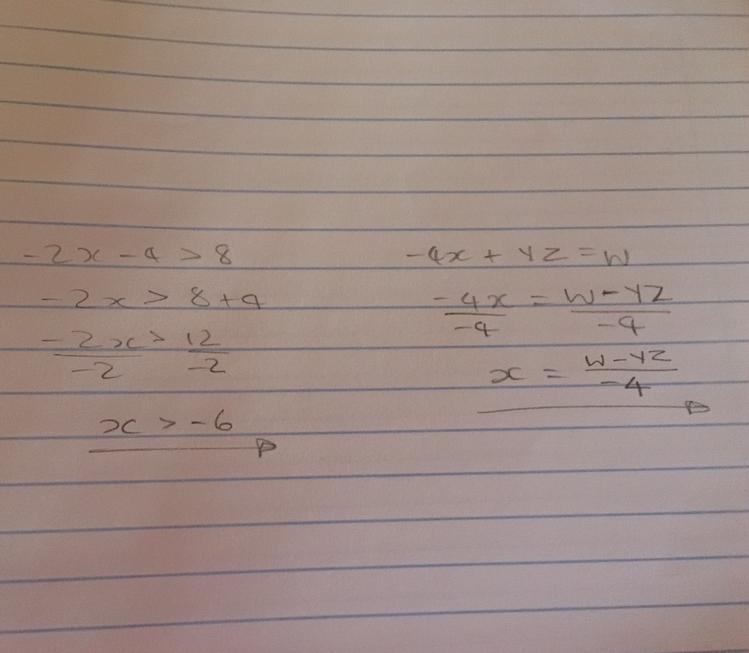 -2x - 4 > 8
-2x > 8 + 4
-2x/-2 > 12/-2
x > -6
-4x + YZ = W
-4x/-4 = W - YZ/-4
x = W - YZ/-4